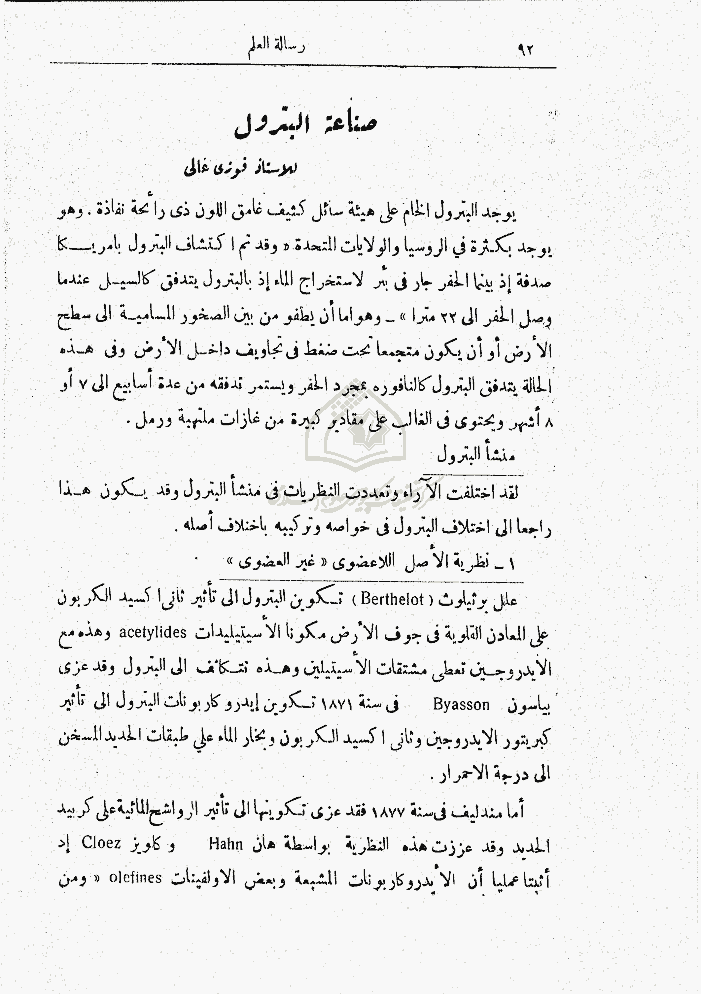 ٩٢
رسالة العلم
صناعة البترول
للاستاذ فوزى غالى
يوجد البترول الخام على هيئة سائل كثيف غامق اللون ذى رائحة نفاذة . وهو
يوجد بكثرة في الروسيا والولايات المتحدة « وقد تم اكتشاف البترول بامريكا
صدفة إذ بينما الحفر جار فى بئر لاستخراج الماء إذ بالبترول يتدفق كالسيل عندما
وصل الحفر الى ٢٢ مترا » ـ وهو اما أن يطفو من بين الصخور المسامية الى سطح
الأرض أو أن يكون متجمعا تحت ضغط فى تجاويف داخل الأرض وفى هذه
الحالة يتدفق البترول كالنافوره بمجرد الحفر ويستمر تدفقه من عدة أسابيع الى ٧ أو
٨ أشهر ويحتوى فى الغالب على مقادير كبيرة من غازات ملتهبة ورمل .
منشأ البترول
لقد اختلفت الآراء وتعددت النظريات فى منشأ البترول وقد يكون هذا
راجعا الى اختلاف البترول فى خواصه وتركيبه باختلاف أصله .
١ ـ نظرية الأصل اللاعضوى « غير العضوى »
علل برثيلوث ( Berthelot ) تكوين البترول الى تأثير ثانى اكسيد الكربون
على المعادن القلوية فى جوف الأرض مكونا الأسيتيليدات acetylides وهذه مع
الايدروجين تعطى مشتقات الأسيتيلين وهذه تتكاثف الى البترول وقد عزى
بياسون Byasson فى سنة ١٨٧١ تكوين إيدروكاربونات البترول الى تأثير
كبريتور الايدروجين وثانى اكسيد الكربون وبخار الماء علي طبقات الحديد المسخن
الى درجة الاحمرار .
أما مندليف فى سنة ١٨٧٧ فقد عزى تكوينها الى تأثير الرواشح المائية على كربيد
الحديد وقد عززت هذه النظرية بواسطة هان Hahn وكلويز Cloez إذ
أثبتا عمليا أن الأيدروكاربونات المشبعة وبعض الاولفينات olefines « ومن